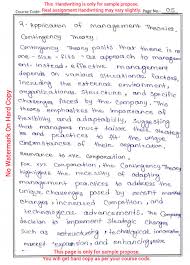 This Handwriting is only for sample prupose.
Real assignment Handwriting may vary slightly.
Course Code: Page No:- 05
2. Application of management Theories,
Contingency Theory
Contingency Theory posits that there is no
one-size-fits-as approach to manage-
ment. Instead effective management
depends on various situational factors,
including the external environment,
organizational structure, and specific
challenges faced by the company. This
theory emphasizes the importance of
flexibility and adaptability, suggesting
that managers must tailor their strategies
and practices to fit the unique
circumstances of their organization.
Relevance to XYZ Corporation.
XYZ Corporation, the Contingency Theory
highlights the necessity of adapting
management practices to address the
unique challenges posed by
changes, increased competition, and
technological advancements. The company
decision to implement strategic changes
such as technological
expansion, and enhancing
No Watermark On Hard Copy
This page is only for sample prupose.
You will get hard copy as per your course code